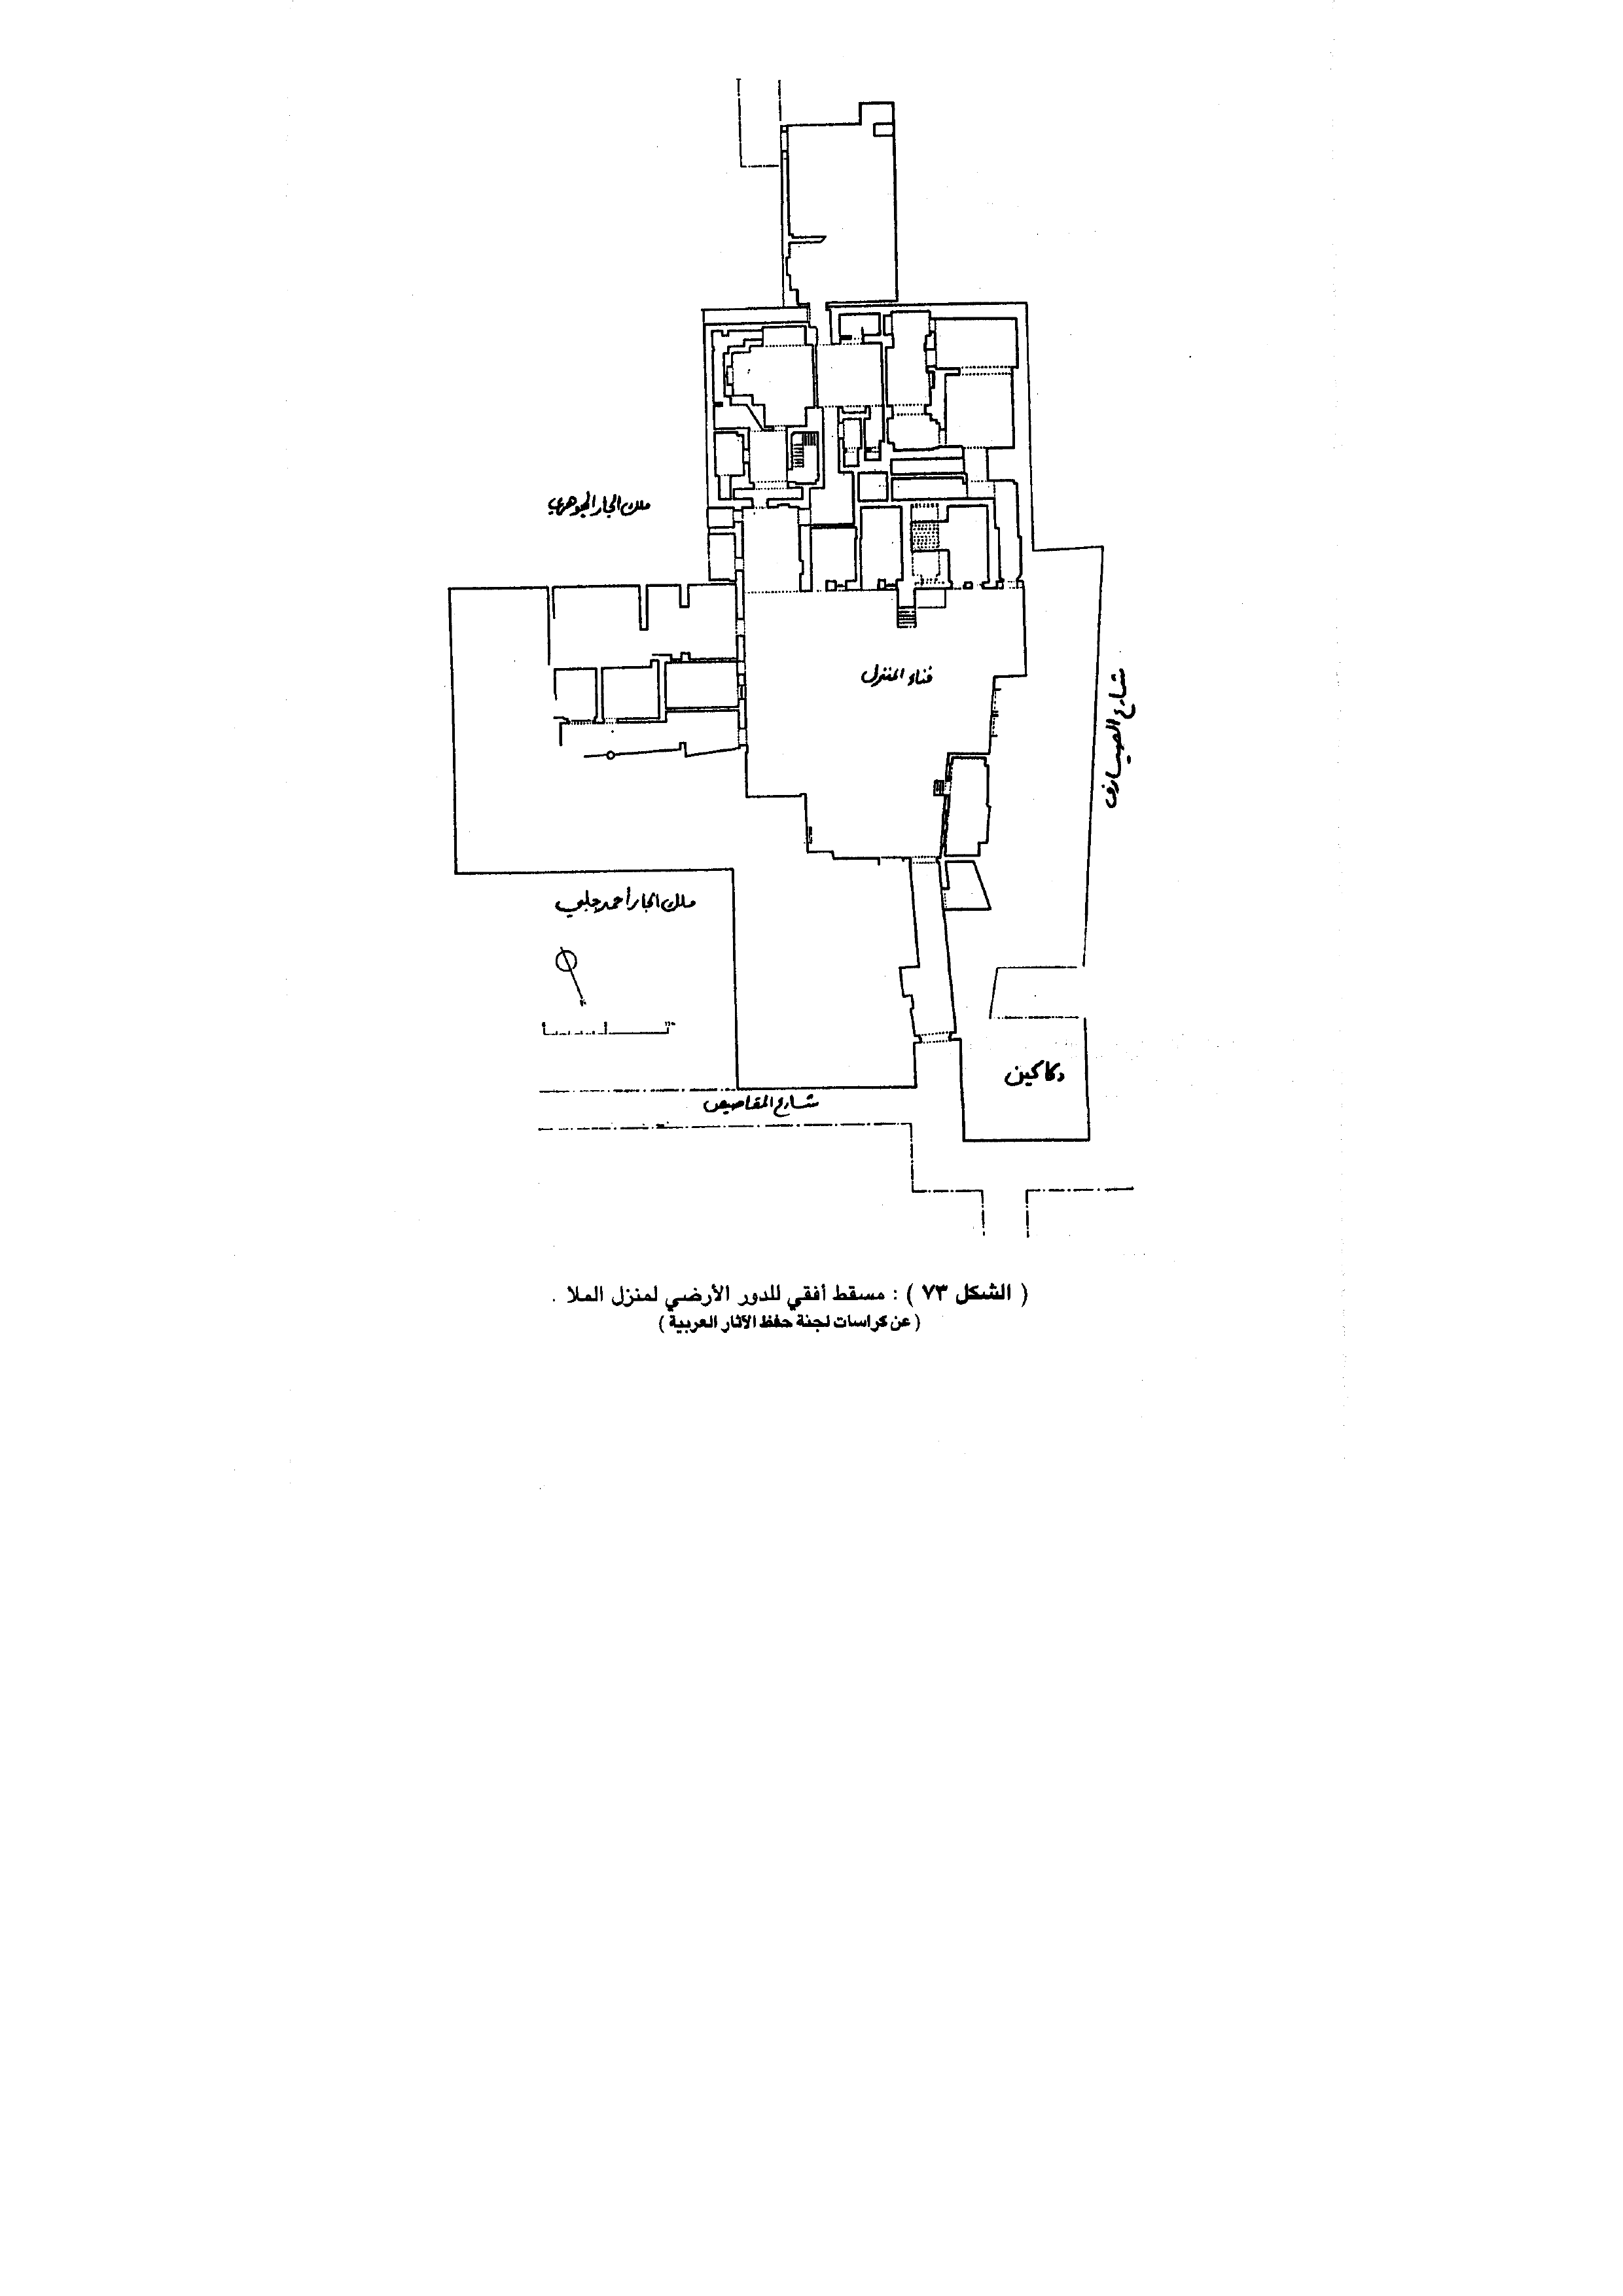 ملك الجار الجوهري
فناء المنزل
شارع الصيارف
ملك الجار أحمد چلبي
دكاكين
شارع المقاصيص
( الشكل ٧٣ ) : مسقط أفقي للدور الأرضي لمنزل الملا .
( عن كراسات لجنة حفظ الآثار العربية )